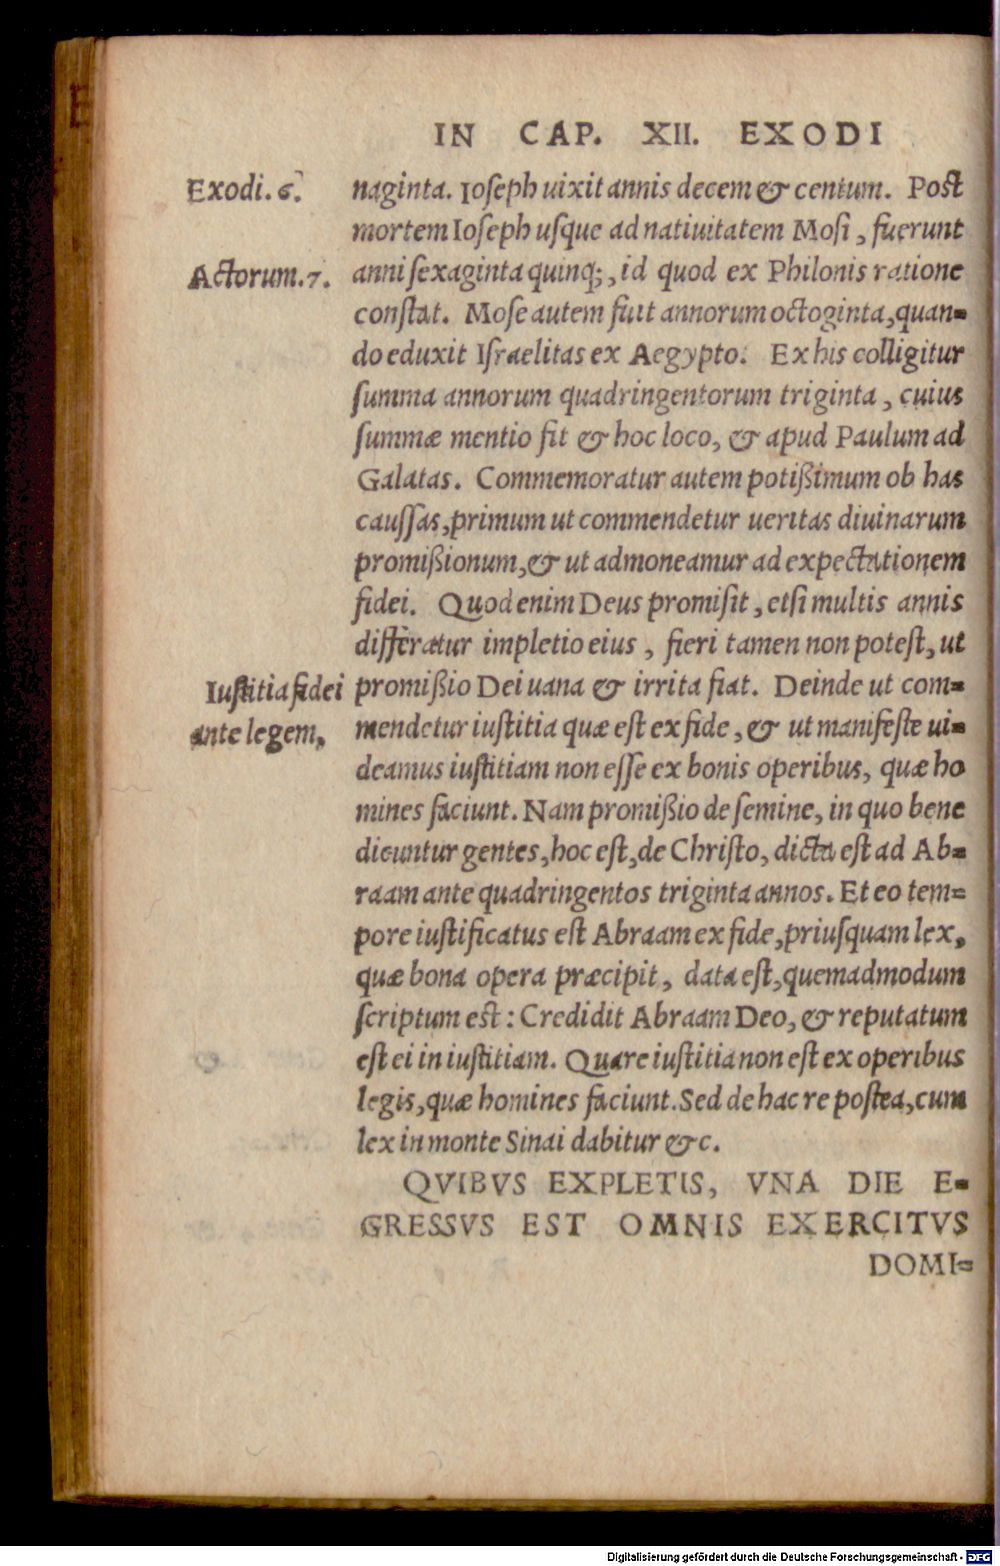 IN CAP. XII. EXODI
Exodi. 6.
naginta. Ioseph uixit annis decem & centum. Post
mortem Ioseph usque ad natiuitatem Mosi, fuerunt
Actorum. 7.
anni sexaginta quinq;, id quod ex Philonis ratione
constat. Mose autem fuit annorum octoginta, quan=
do eduxit Israelitas ex Aegypto. Ex his colligitur
summa annorum quadringentorum triginta, cuius
summæ mentio fit & hoc loco, & apud Paulum ad
Galatas. Commemoratur autem potißimum ob has
caussas, primum ut commendetur ueritas diuinarum
promißionum, & ut admoneamur ad expectationem
fidei. Quod enim Deus promisit, etsi multis annis
differatur impletio eius, fieri tamen non potest, ut
Iustitia fidei
ante legem,
promißio Dei uana & irrita fiat. Deinde ut com=
mendetur iustitia quæ est ex fide, & ut manifeste ui=
deamus iustitiam non esse ex bonis operibus, quæ ho
mines faciunt. Nam promißio de semine, in quo bene
dicuntur gentes, hoc est, de Christo, dicta est ad Ab=
raam ante quadringentos triginta annos. Et eo tem=
pore iustificatus est Abraam ex fide, priusquam lex,
quæ bona opera præcipit, data est, quemadmodum
scriptum est: Credidit Abraam Deo, & reputatum
est ei in iustitiam. Quare iustitia non est ex operibus
legis, quæ homines faciunt. Sed de hac re postea, cum
lex in monte Sinai dabitur &c.
QVIBVS EXPLETIS, VNA DIE E=
GRESSVS EST OMNIS EXERCITVS
DOMI=
Digitalisierung gefördert durch die Deutsche Forschungsgemeinschaft - DFG